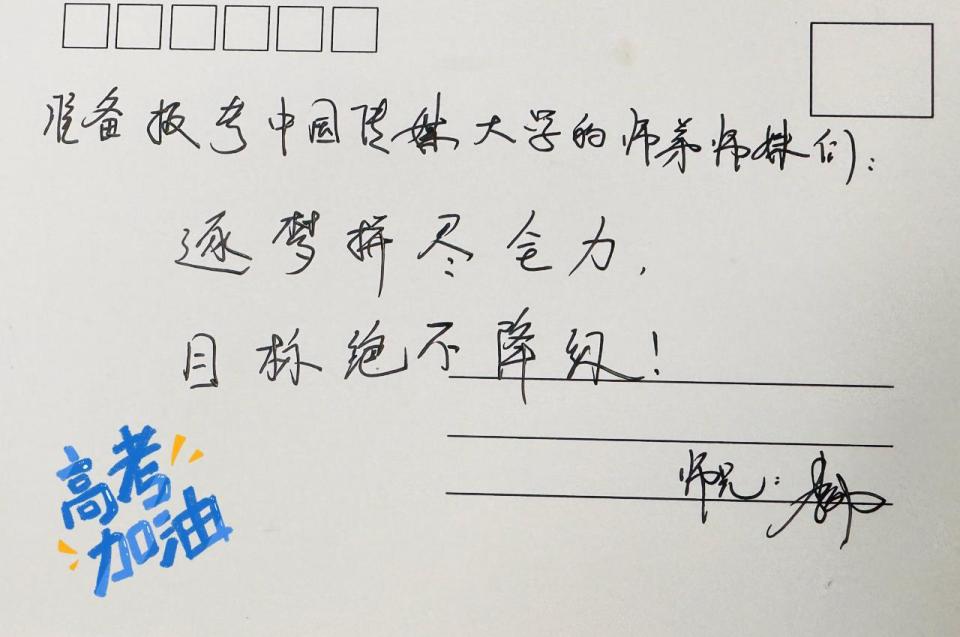 准备报考中国传媒大学的师弟师妹们：
逐梦拼尽全力，
目标绝不降级！
师兄：
高考
加油